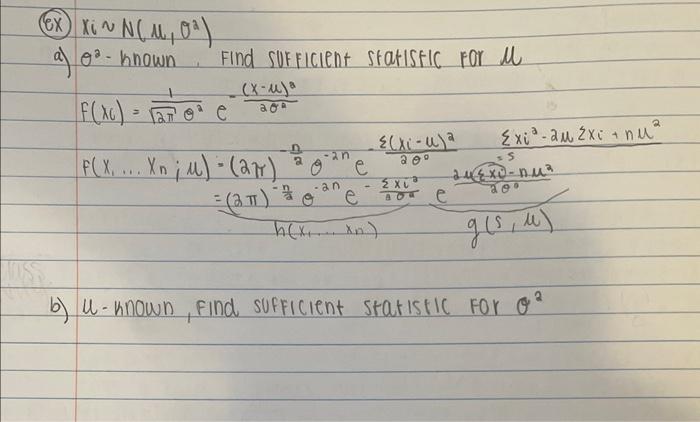 (ex) Xi ~ N(μ, σ²)
a) σ² - known. Find sufficient statistic for μ
f(xi) = 1/√2π σ² e^-(x-μ)²/2σ²
f(x, ... xn; μ) = (2π)^-n/2 σ^-2n e^-Σ(xi-μ)²/2σ² Σxi² - 2μΣxi + nμ²
= (2π)^-n/2 σ^-2n e^-Σxi²/2σ² e^2μΣxi - nμ²/2σ² = s
h(x, ... xn) g(s, μ)
b) μ - known, find sufficient statistic for σ²